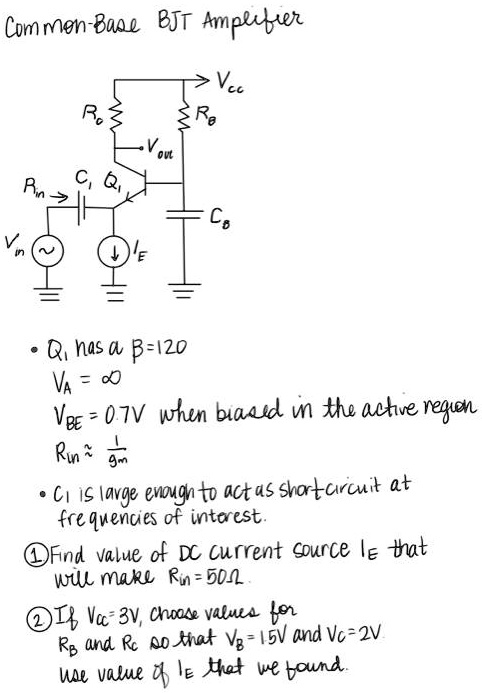 Common-Base BJT Amplifier
Vcc
Rc
RB
Vout
Rin
C1
Q1
CB
Vin
IE
• Q1 has a β=120
VA = ∞
VBE = 0.7V when biased in the active region
Rin ≈ 1/gm
• C1 is large enough to act as short circuit at
frequencies of interest.
① Find value of DC current source IE that
will make Rin = 50Ω.
② If Vcc=3V, choose values for
RB and Rc so that VB = 1.5V and Vc = 2V.
Use value of IE that we found.